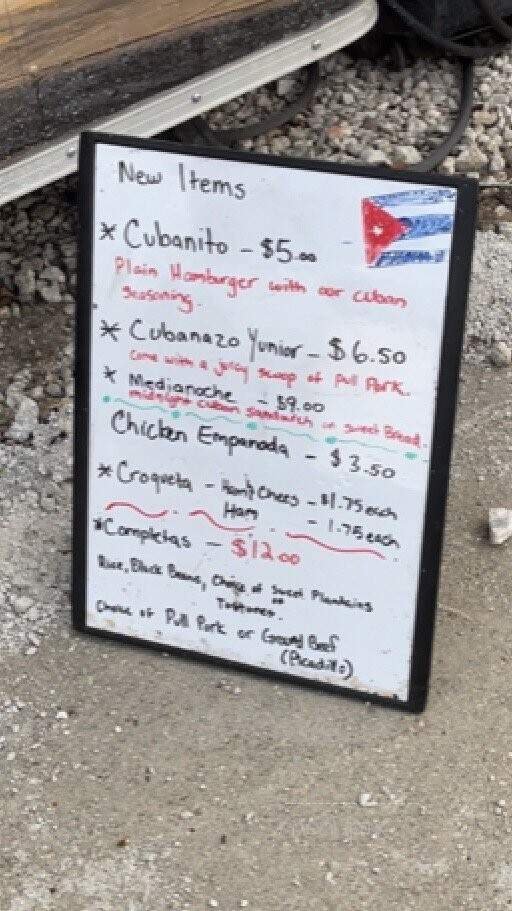 New Items
* Cubanito - $5.00
Plain Hamburger with our cuban
seasoning.
* Cubanazo Yunior - $6.50
Come with a juicy scoop of Pull Pork.
* Medianoche - $9.00
midnight cuban sandwich on sweet Bread.
Chicken Empanada - $3.50
* Croqueta - Ham & Chees - $1.75 each
Ham - 1.75 each
* Completas - $12.00
Rice, Black Beans, Choice of Sweet Plantains
or
Tostones.
Choice of Pull Pork or Ground Beef
(Picadillo)